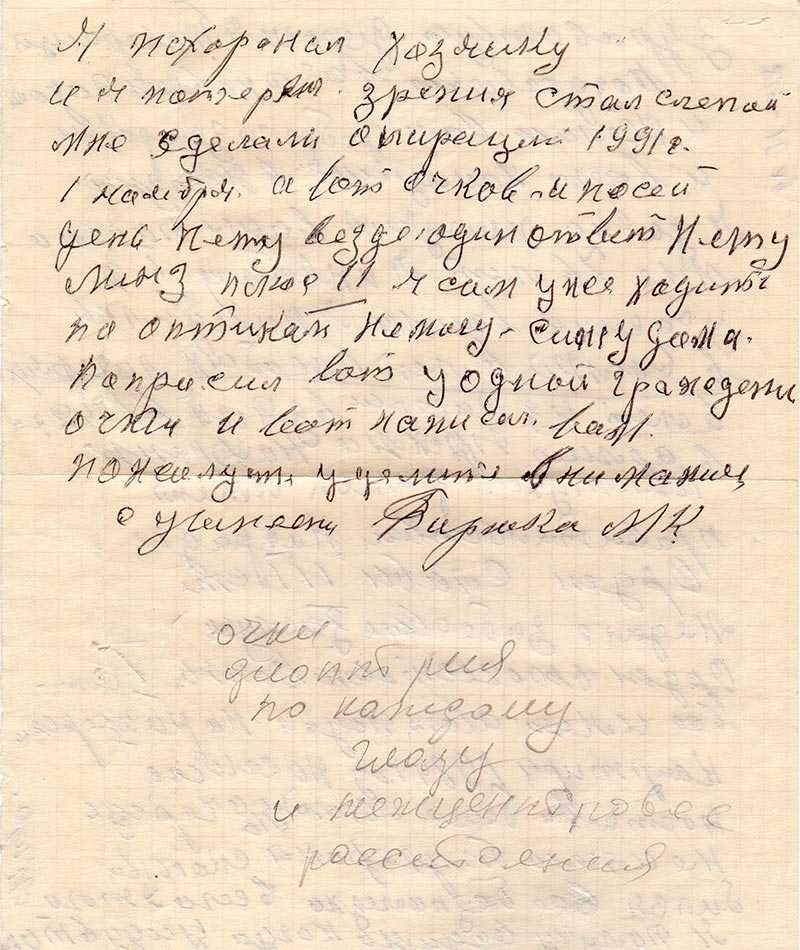 Я похоронил хозяику
и я потерял зрения стал слепой
мне зделали опирацыю 1991 г.
1 ноября. а вот очков и посей
день нету везде один ответ нету
линз плюс 11 я сам уже ходить
по оптикам немогу. сижу дома.
Попросил вот у одной граждени
очки и вот написал вам.
пожалуста уделите внимания
с уважен Бирюка МК
очки
диоптрия
по каждому
глазу
и межцентровое
расстояния